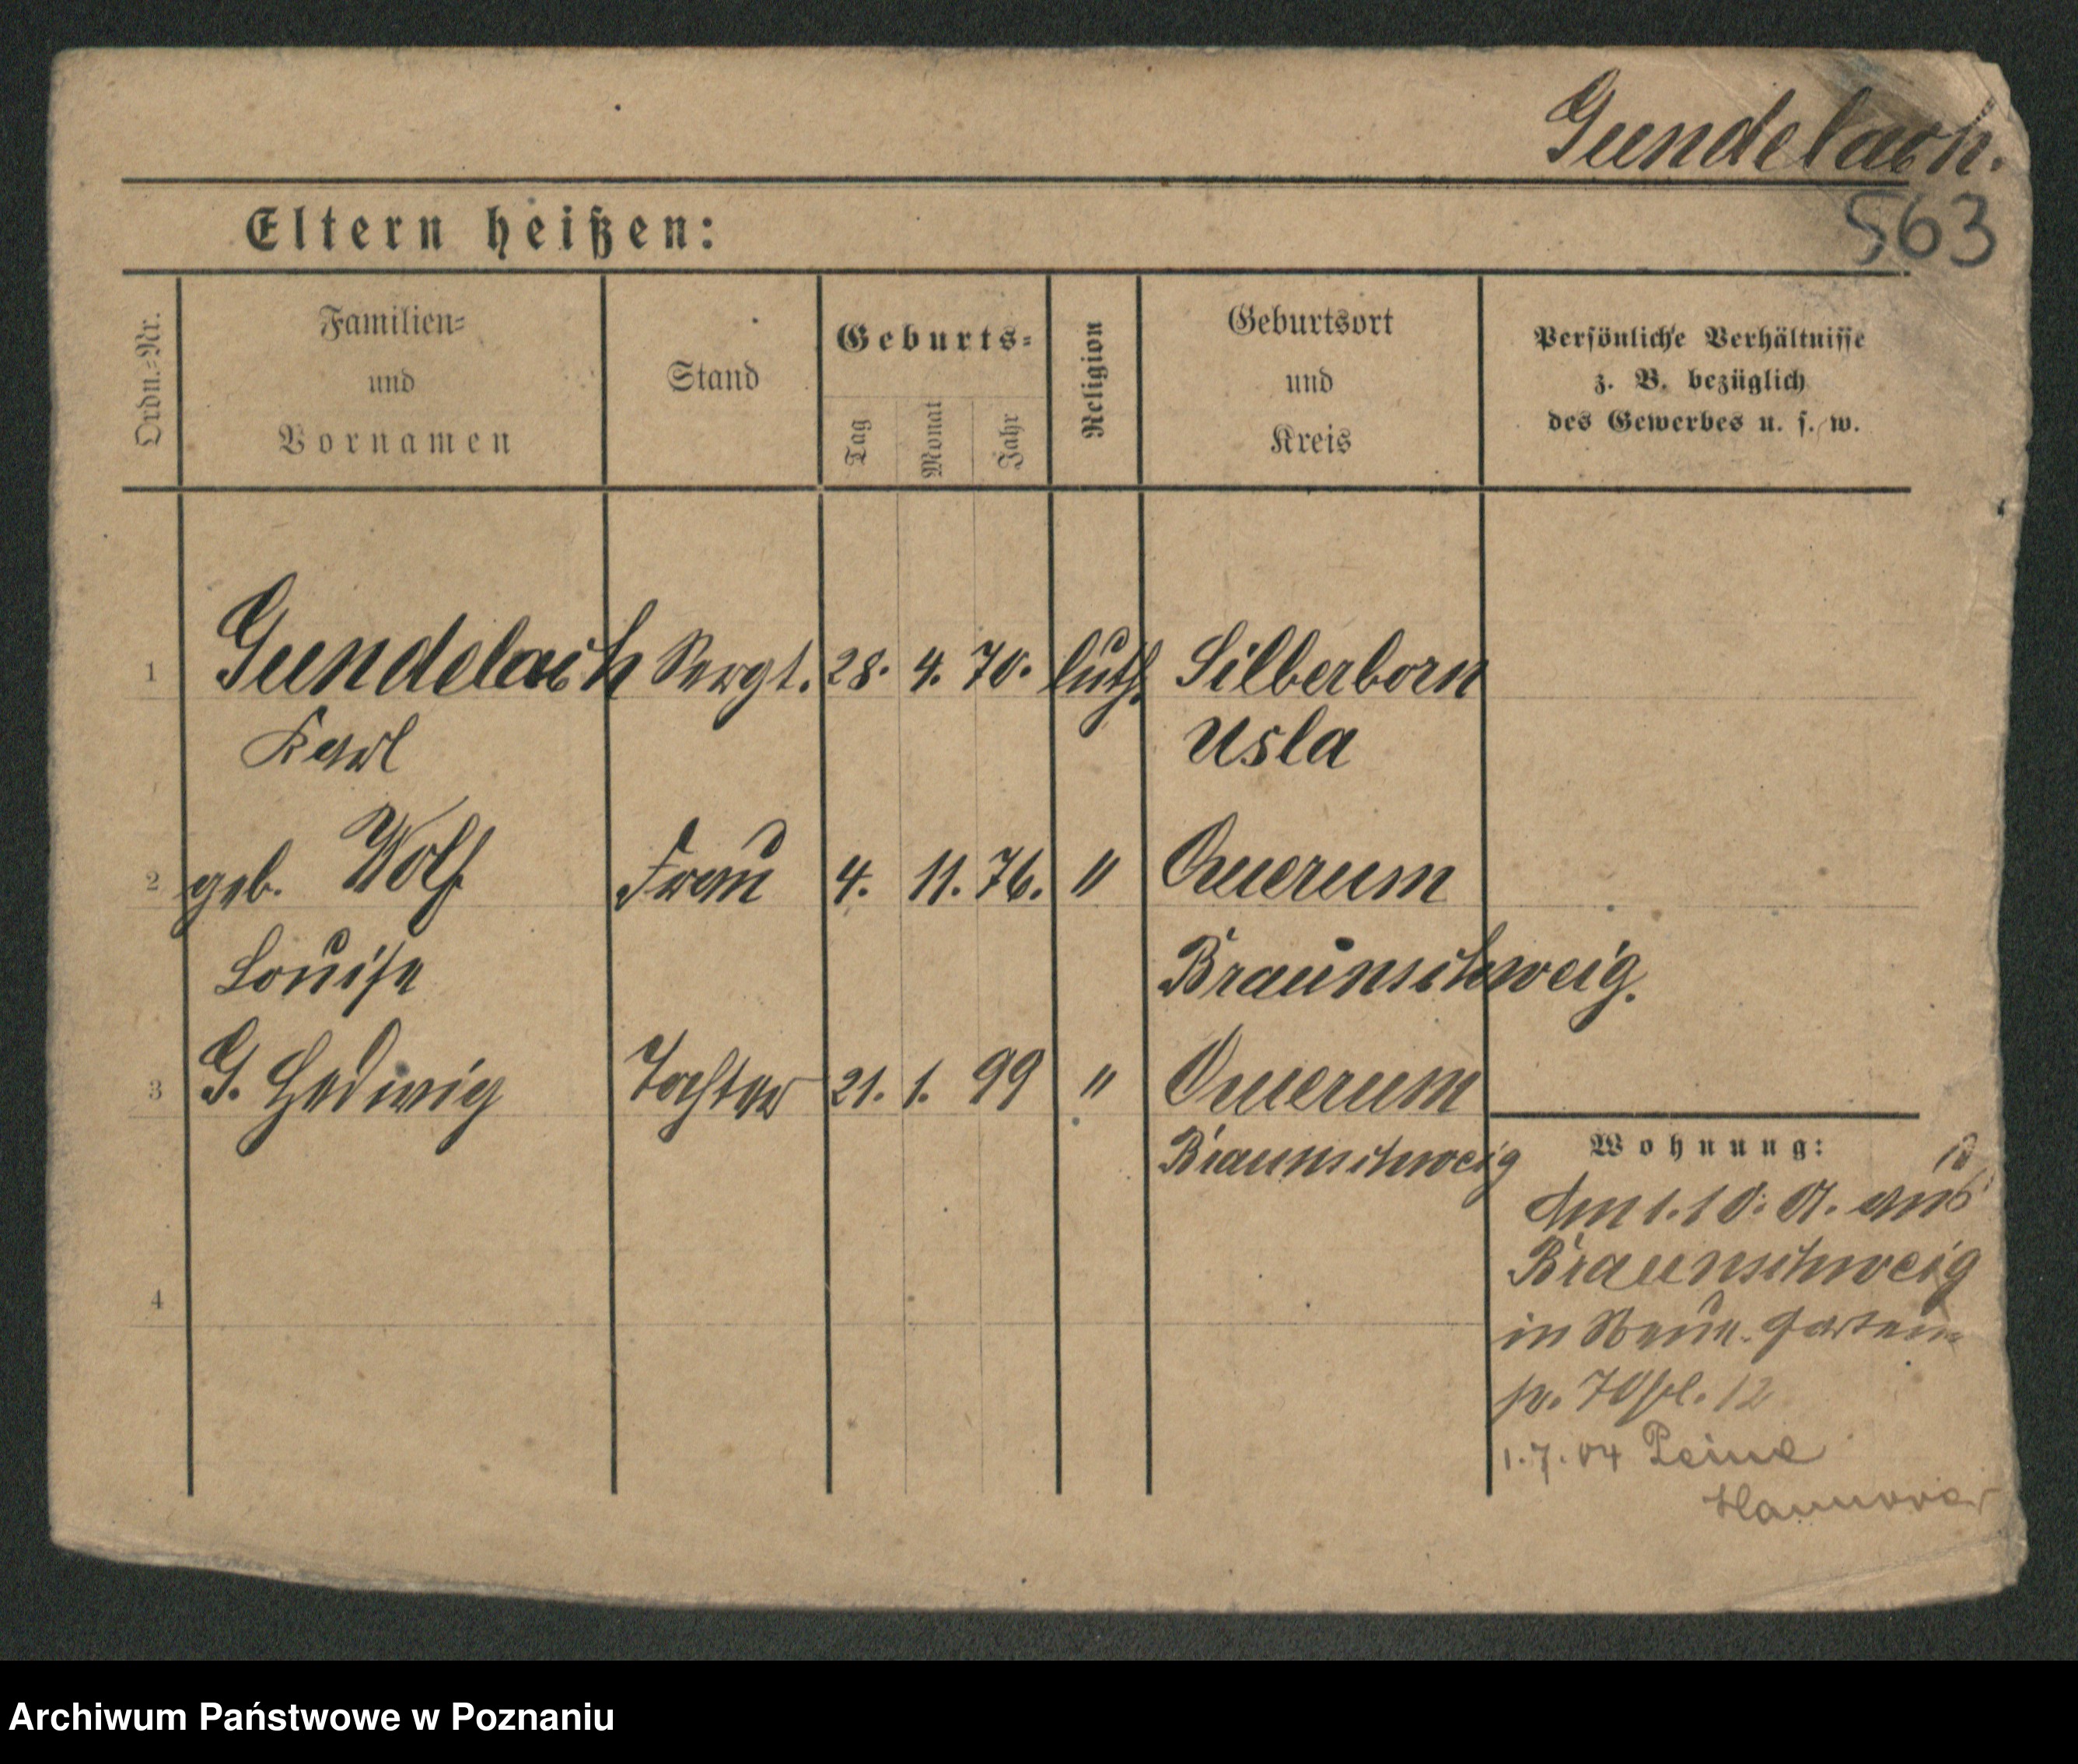 Gundelach.
563
Eltern heißen:
Ordn.=Nr.
Familien=
und
Vornamen
Stand
Geburts=
Tag
Monat
Jahr
Religion
Geburtsort
und
Kreis
Persönliche Verhältnisse
z. B. bezüglich
des Gewerbes u. s. w.
1 Gundelach Sergt. 28. 4. 70. luth. Silberborn
Karl Usla
2 geb. Wolf Frau 4. 11. 76. " Querum
Louise Braunschweig.
3 G. Hedwig Tochter 21. 1. 99 " Querum
Braunschweig
Wohnung:
Am 1.10. 01. aus
Braunschweig
in Garten
12
4
1.7.04 Peine
Hannover
Archiwum Państwowe w Poznaniu